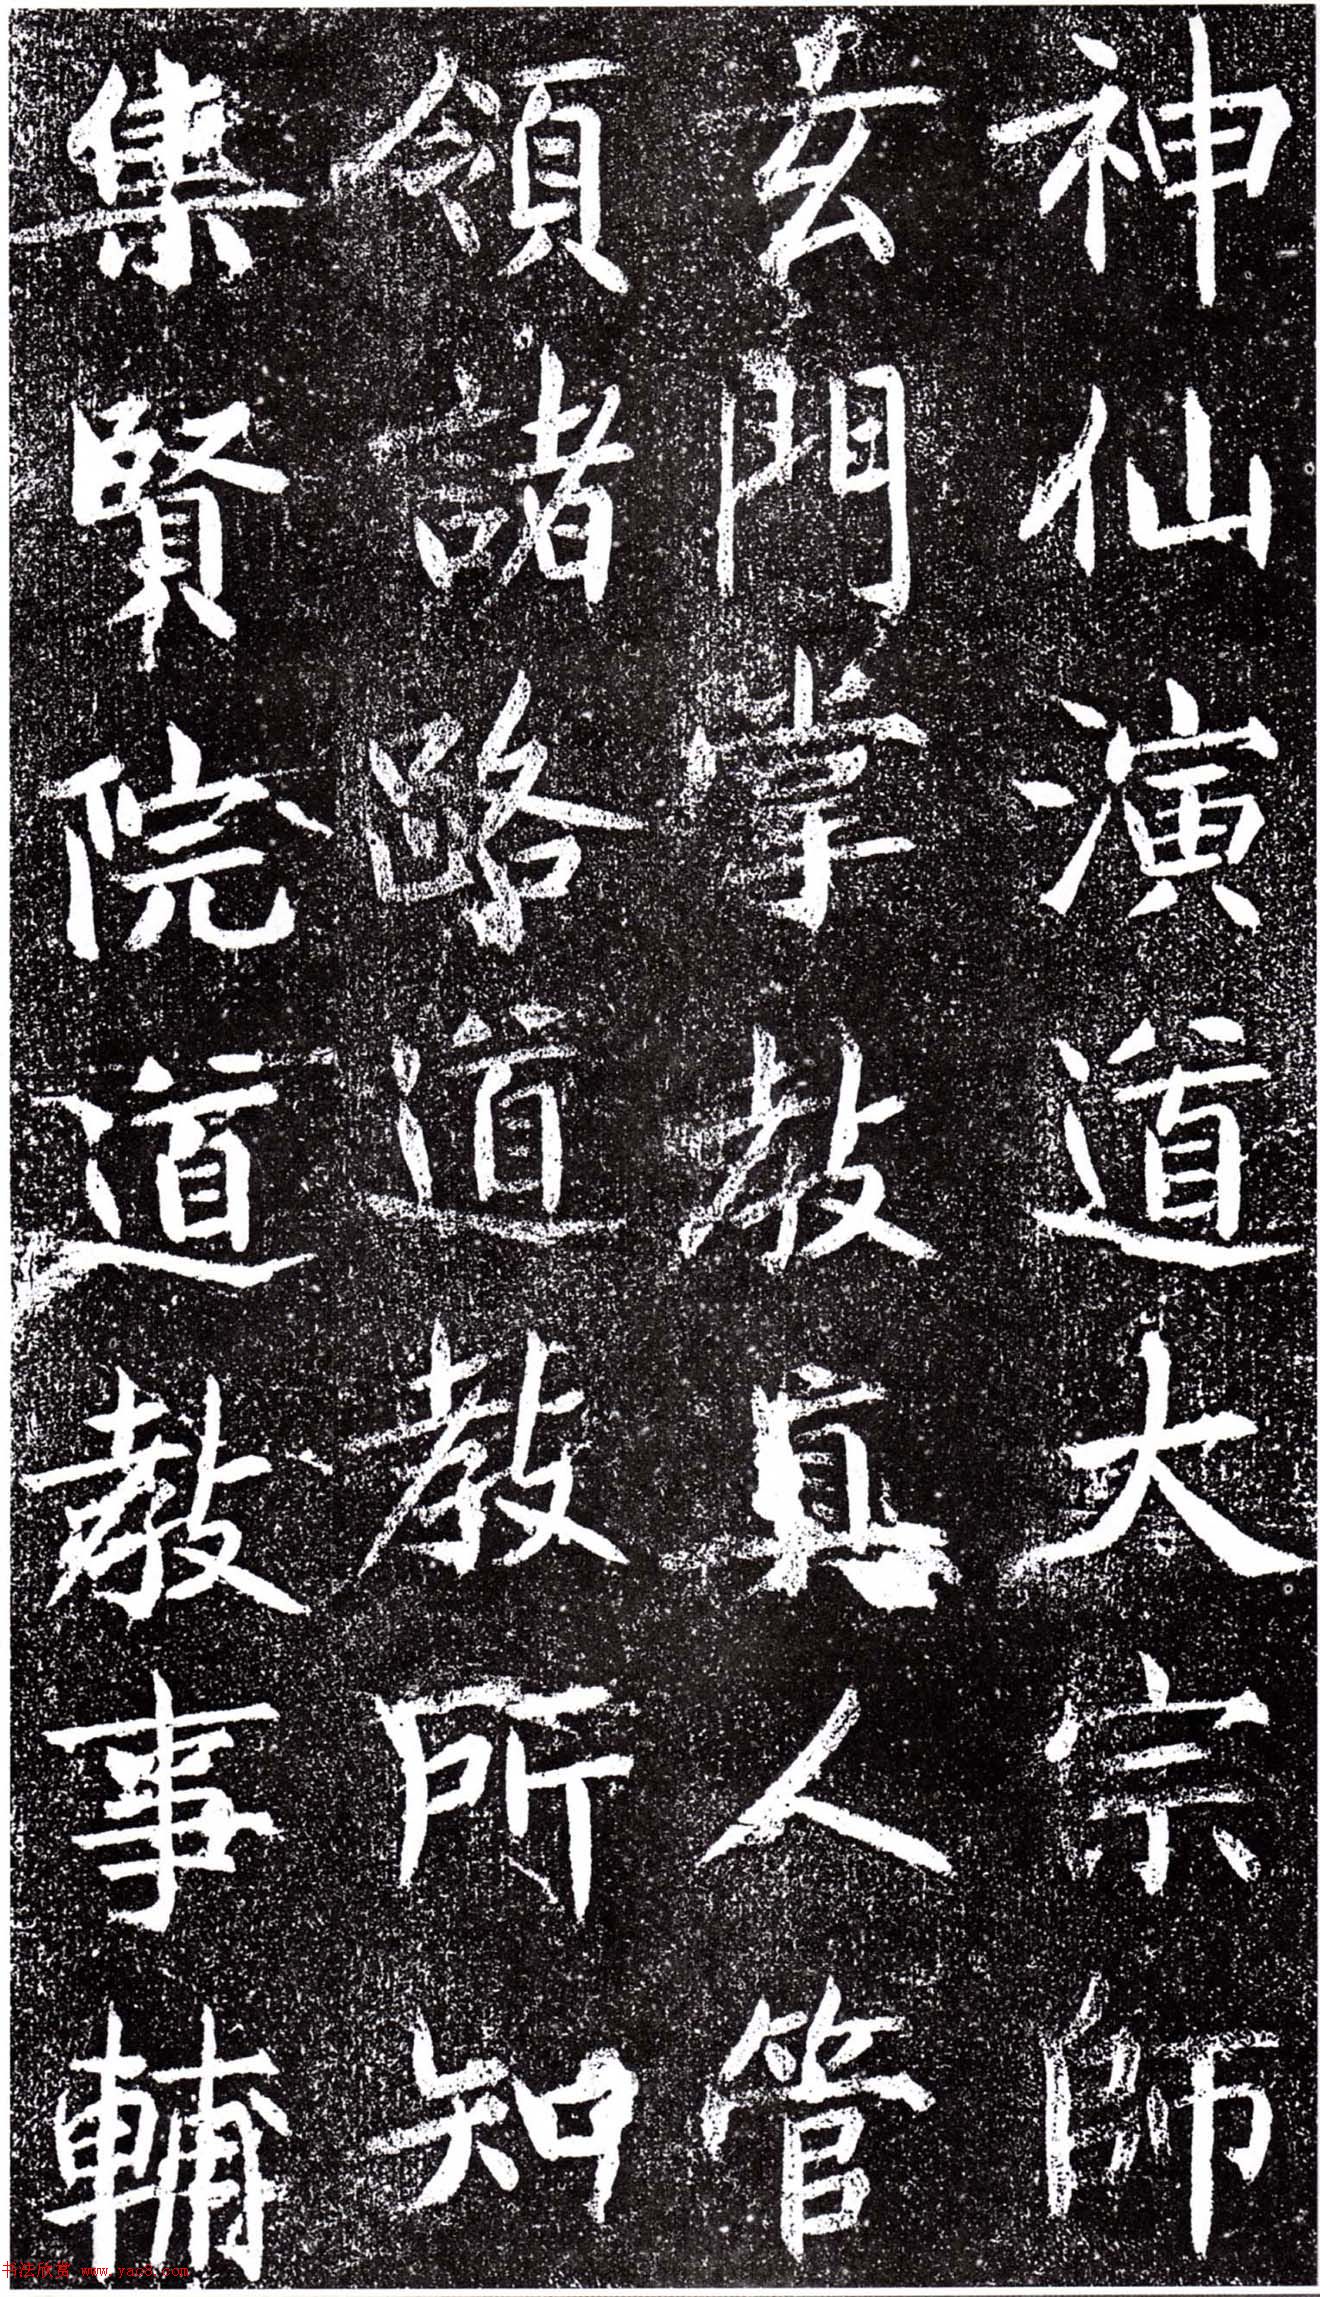 神仙演道大宗師
玄門掌教真人管
領諸路道教所知
集賢院道教事輔
书法欣赏 www.yac8.com